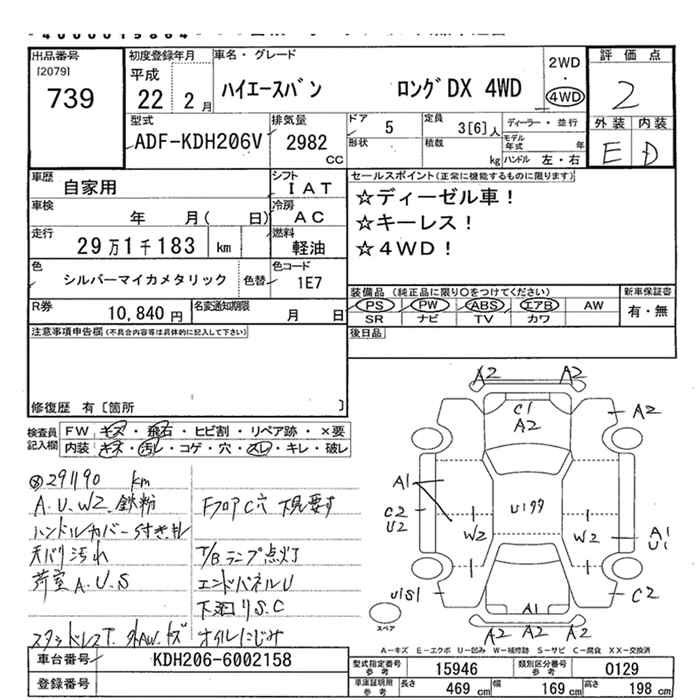 出品番号
[2079]
739
初度登録年月
平成
22 2 月
車名・グレード
ハイエースバン ロングDX 4WD
2WD
・
4WD
評価点
2
外装 内装
E D
型式
ADF-KDH206V
排気量
2982
CC
ドア
5
形状
定員
3[6]人
積載
kg
ディーラー・並行
モデル
年式 年
ハンドル 左・右
車歴
自家用
シフト
I AT
車検
年 月( 日)
冷房
AC
走行
29万1千183 km
燃料
軽油
色
シルバーマイカメタリック
色替
色コード
1E7
R券
10,840 円
名変通知期限
月 日
セールスポイント(正常に機能するものに限ります)
☆ディーゼル車!
☆キーレス!
☆4WD!
装備品 (純正品に限り○をつけてください)
PS PW ABS エアB AW
SR ナビ TV カワ
新車保証書
有・無
後日品
注意事項申告欄(不具合内容等は具体的に記入して下さい)
修復歴 有 [箇所 ]
検査員
記入欄
FW キズ・飛石・ヒビ割・リペア跡・×要
内装 キズ・汚レ・コゲ・穴・メレ・キレ・破レ
291190 km
A.U.W2.鉄粉
ハンドルカバー付きキレ
天バリ汚れ
荷室A.U.S
スタッドレスT. 外AW.キズ
フロアC穴 下見要す
T/Bランプ点灯
エンドパネルU
下廻りS.C
オイルにじみ
A2 A2
C1
A2
A2
A1
C2
U2
U199
W2 W2
A1
U1
U1S1
C2
A1
A2 A2 A2
スペア
A-キズ E-エクボ U-凹み W-補修跡 S-サビ C-腐食 XX-交換済
車台番号
KDH206-6002158
登録番号
型式指定番号
参考
15946
類別区分番号
参考
0129
車庫証明用
参考
長さ 469 cm 幅 169 cm 高さ 198 cm